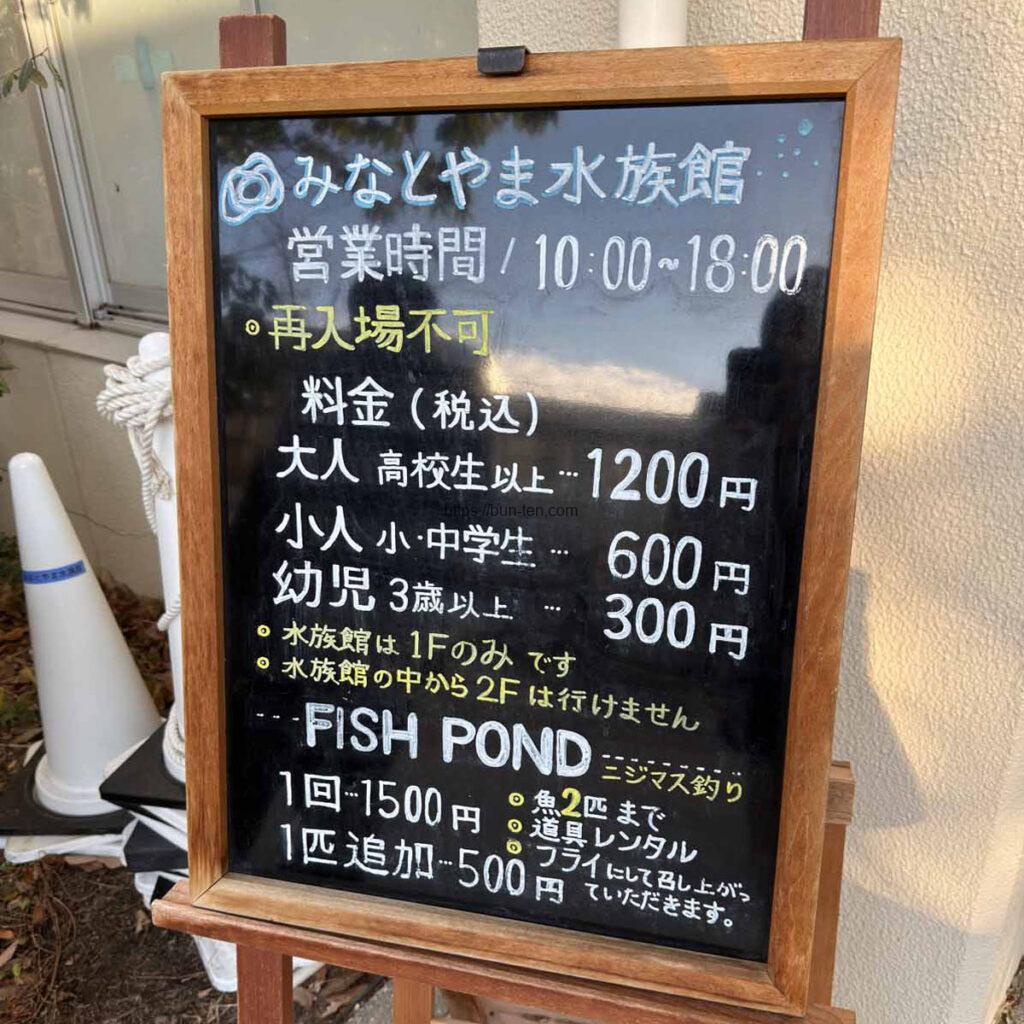 みなとやま水族館
営業時間/10:00~18:00
再入場不可
料金(税込)
大人 高校生以上…1200円
https://bun-ten.com
小人 小・中学生…600円
幼児 3歳以上…300円
水族館は1Fのみです
水族館の中から2Fは行けません
FISH POND
ニジマス釣り
1回…1500円
1匹追加…500円
魚2匹まで
道具レンタル
フライにして召し上がっ
ていただきます。